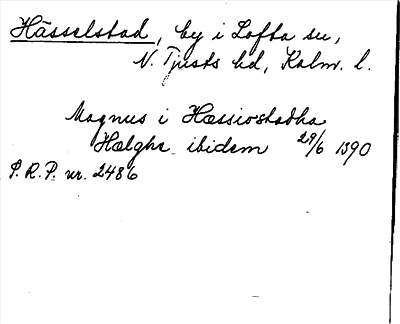 Hässelstad, by i Lofta sn,
N. Tjusts hd, Kalm. l.
Magnus i Hæssiostadha
Hælghe ibidem 29/6 1390
P.R.P. nr. 2486